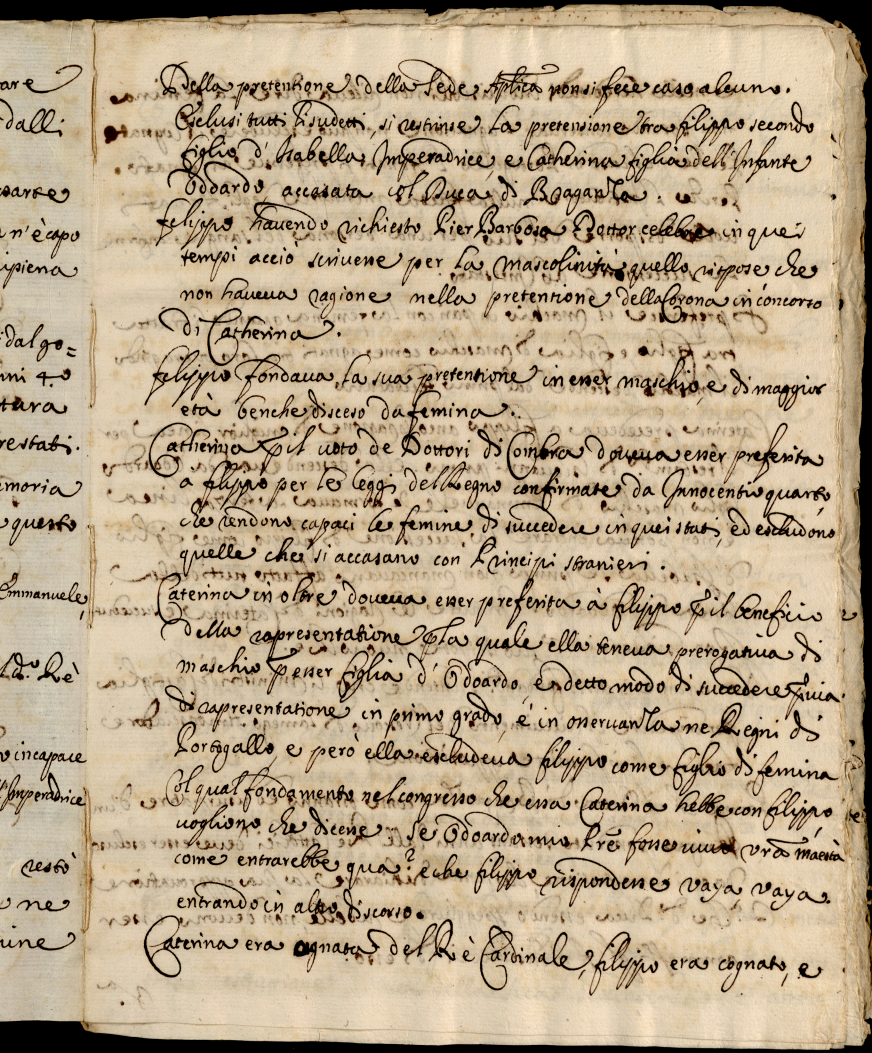 Della pretentione della Sede Aplica non si fece caso alcuno.
Esclusi tutti li sudetti, si restrinse la pretensione tra filippo secondo
figlio d' Isabella Imperadrice, e Catherina figlia dell' Infante
Oddardo accasata col Duca di Braganza.
filippo havendo richiesto Pier Barbosa Dottor celebre in quei
tempi acciò scrivesse per la mascolinità quello rispose che
non haveva ragione nella pretentione della Corona in concorso
di Catherina.
filippo fondava la sua pretentione in esser maschio, e di maggior
età benche disceso da femina.
Catherina p il voto de Dottori di Coimbra doveva esser preferita
a filippo per le leggi del Regno confirmate da Innocentio quarto
che rendono capaci le femine di succedere in quei stati, ed escludono
quelle che si accasano con Principi stranieri.
Caterina in oltre doveva esser preferita à filippo p il beneficio
della rapresentatione p la quale ella teneva prerogativa di
maschio p esser figlia d' Odoardo, e detto modo di succedere p via
di rapresentatione in primo grado, é in osservanza ne Regni di
Portogallo, e però ella escludeva filippo come figlio di femina
Col qual fondamento nel congresso che essa Caterina hebbe con filippo
vogliono che dicesse se Odoardo mio Prē fosse vivo vrã maestà
come entrarebbe qua? e che filippo rispondesse vaya, vaya
entrando in altro discorso.
Caterina era agnata del Rè Cardinale, filippo era cognato, e
are
dalli
n' è capo
ipiena
dal go=
nni 4.º
tura
restati.
emoria
questo
Emmanuele,
Rè
incapace
Imperadrice
restò
ne